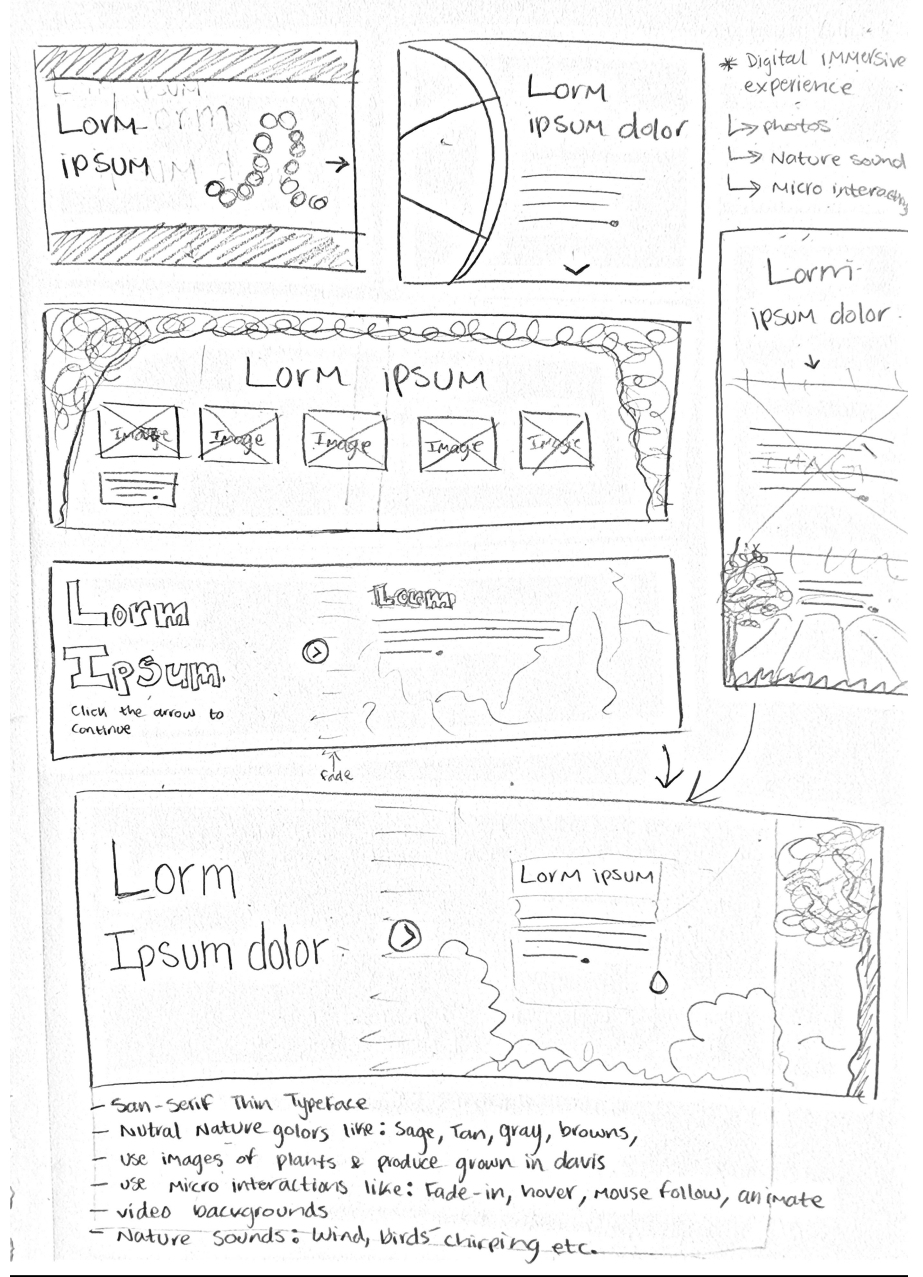 Lorm
ipsum
Lorm
ipsum dolor
* Digital immersive
experience
photos
Nature sound
Micro
Lorm
ipsum dolor
Lorm ipsum
Image
Image
Image
Image
Image
IMAG
Lorm
Ipsum.
Click the arrow to
Continue
Lorm
fade
Lorm
Ipsum dolor
Lorm ipsum
- San-Serif Thin Typeface
- Nutral Nature colors like: Sage, Tan, gray, browns,
- use images of plants & produce grown in davis
- use Micro interactions like: Fade-in, hover, mouse follow, animate
- video backgrounds
- Nature Sounds: Wind, birds chirping etc.